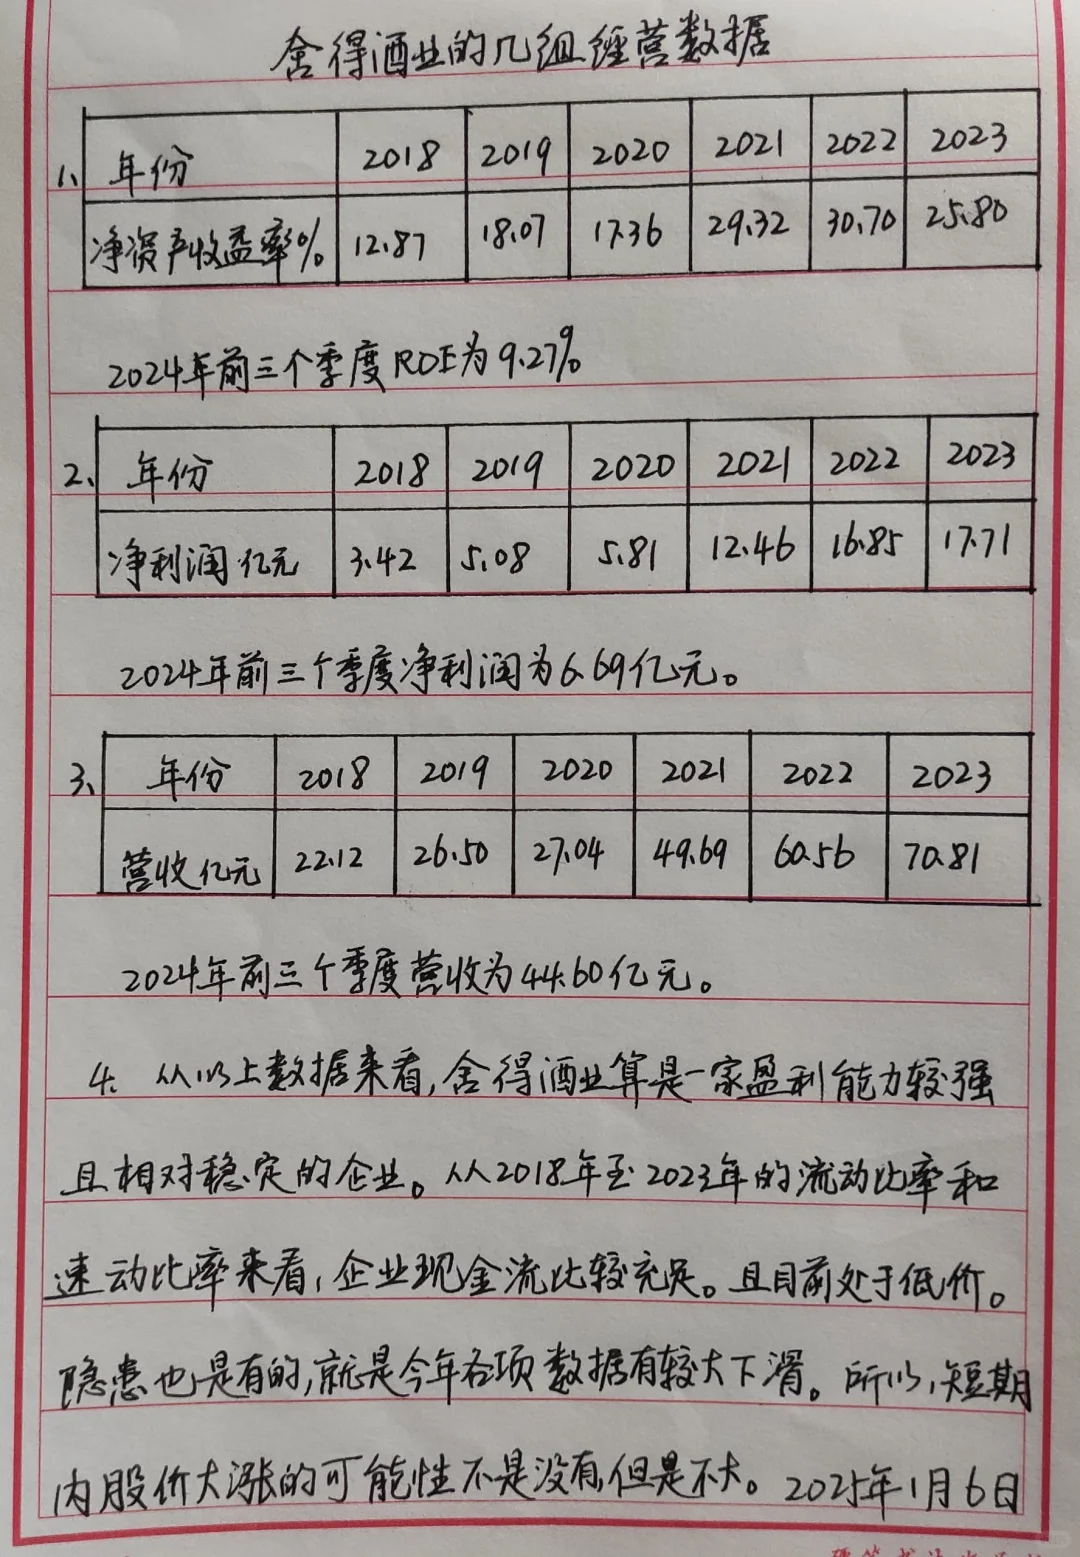 舍得酒业的几组经营数据
1、年份 2018 2019 2020 2021 2022 2023
净资产收益率% 12.87 18.07 17.36 29.32 30.70 25.80
2024年前三个季度ROE为9.27%
2、年份 2018 2019 2020 2021 2022 2023
净利润亿元 3.42 5.08 5.81 12.46 16.85 17.71
2024年前三个季度净利润为6.69亿元。
3、年份 2018 2019 2020 2021 2022 2023
营收亿元 22.12 26.50 27.04 49.69 60.56 70.81
2024年前三个季度营收为44.60亿元。
4、从以上数据来看,舍得酒业算是一家盈利能力较强
且相对稳定的企业。从2018年至2023年的流动比率和
速动比率来看,企业现金流比较充足。且目前处于低价。
隐患也是有的,就是今年各项数据有较大下滑。所以,短期
内股价大涨的可能性不是没有,但是不大。2025年1月6日